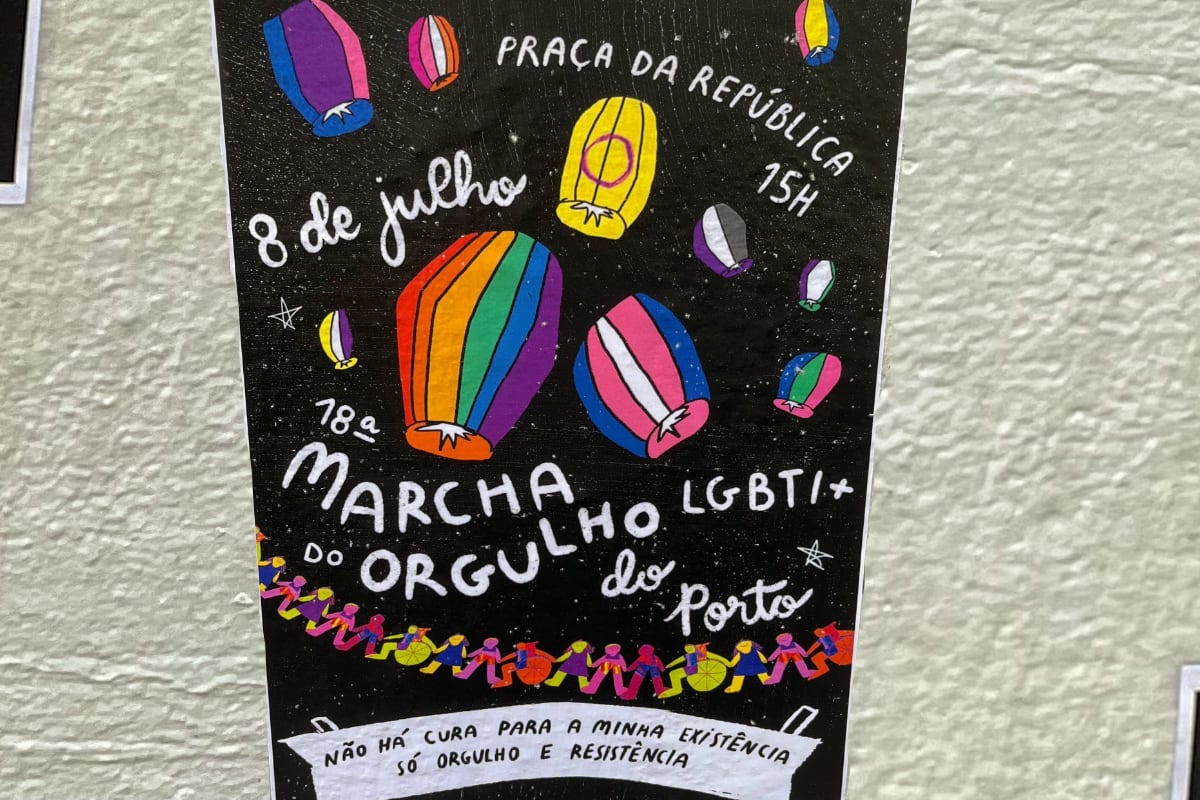 PRAÇA DA REPÚBLICA
15H
8 de julho
18ª
MARCHA
DO ORGULHO LGBTI+
do Porto
NÃO HÁ CURA PARA A MINHA EXISTÊNCIA
SÓ ORGULHO E RESISTÊNCIA